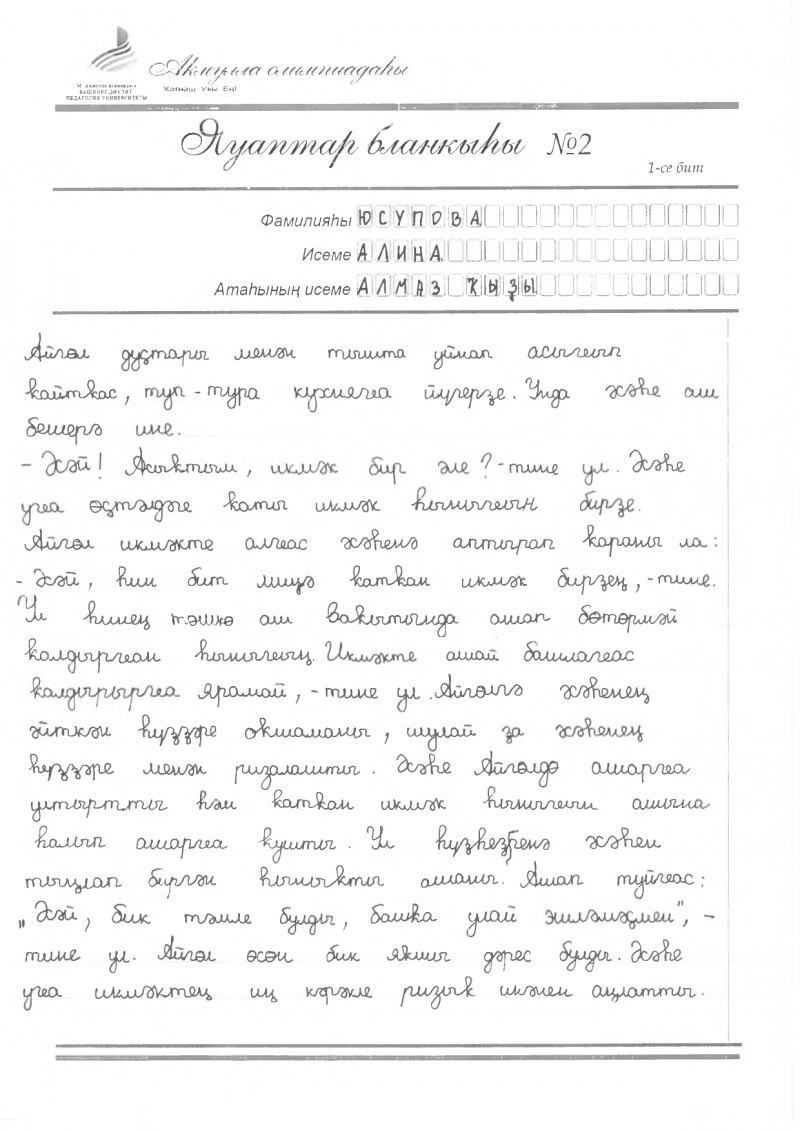 М. Акмулла исемендәге
БАШҠОРТ ДӘҮЛӘТ
ПЕДАГОГИЯ УНИВЕРСИТЕТЫ
Аҡмулла олимпиадаһы
Ҡатнаш Уҙы Ең!
Яуаптар бланкыһы №2
1-се бит
Фамилияһы ЮСУПОВА
Исеме АЛИНА
Атаһының исеме АЛМАЗ ҠЫҘЫ
Айгөл дуҫтары менән тышта уйнап асығып
ҡайтҡас, туп-тура кухняға йүгерҙе. Унда әсәһе аш
бешерә ине.
- Әсәй! Асыҡтым, икмәк бир әле? - тине ул. Әсәһе
уға өҫтәлдәге ҡаты икмәк һынығын бирҙе.
Айгөл икмәкте алғас әсәһенә аптырап ҡараны ла:
- Әсәй, һин бит миңә ҡатҡан икмәк бирҙең, - тине.
Ул һинең төшкө аш ваҡытында ашап бөтөрмәй
ҡалдырған һынығың. Икмәкте ашай башлағас
ҡалдырырға ярамай, - тине ул. Айгөлгә әсәһенең
әйткән һүҙҙәре оҡшаманы, шулай ҙа әсәһенең
һүҙҙәре менән ризалашты. Әсәһе Айгөлдө ашарға
ултыртты һәм ҡатҡан икмәк һынығын ашына
һалып ашарға ҡушты. Ул һүҙһеҙ генә әсәһен
тыңлап бөргән һыныҡты ашаны. Ашап туйғас:
„Әсәй, бик тәмле булды, башҡа улай эшләмәҫмен", -
тине ул. Айгөл өсөн бик яҡшы дәрес булды. Әсәһе
уға икмәктең иң кәрәкле ризыҡ икәнен аңлатты.